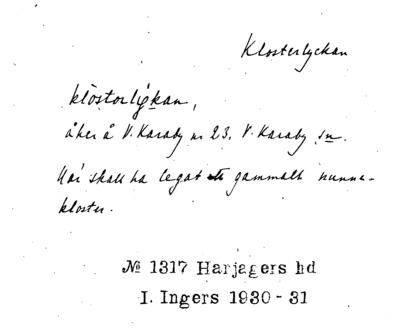 Klosterlyckan
klåstorlýckan,
åker å V. Karaby nr 23, V. Karaby sn.
Här skall ha legat ett gammalt nunne-
kloster.
№ 1317 Harjagers hd
I. Ingers 1930-31